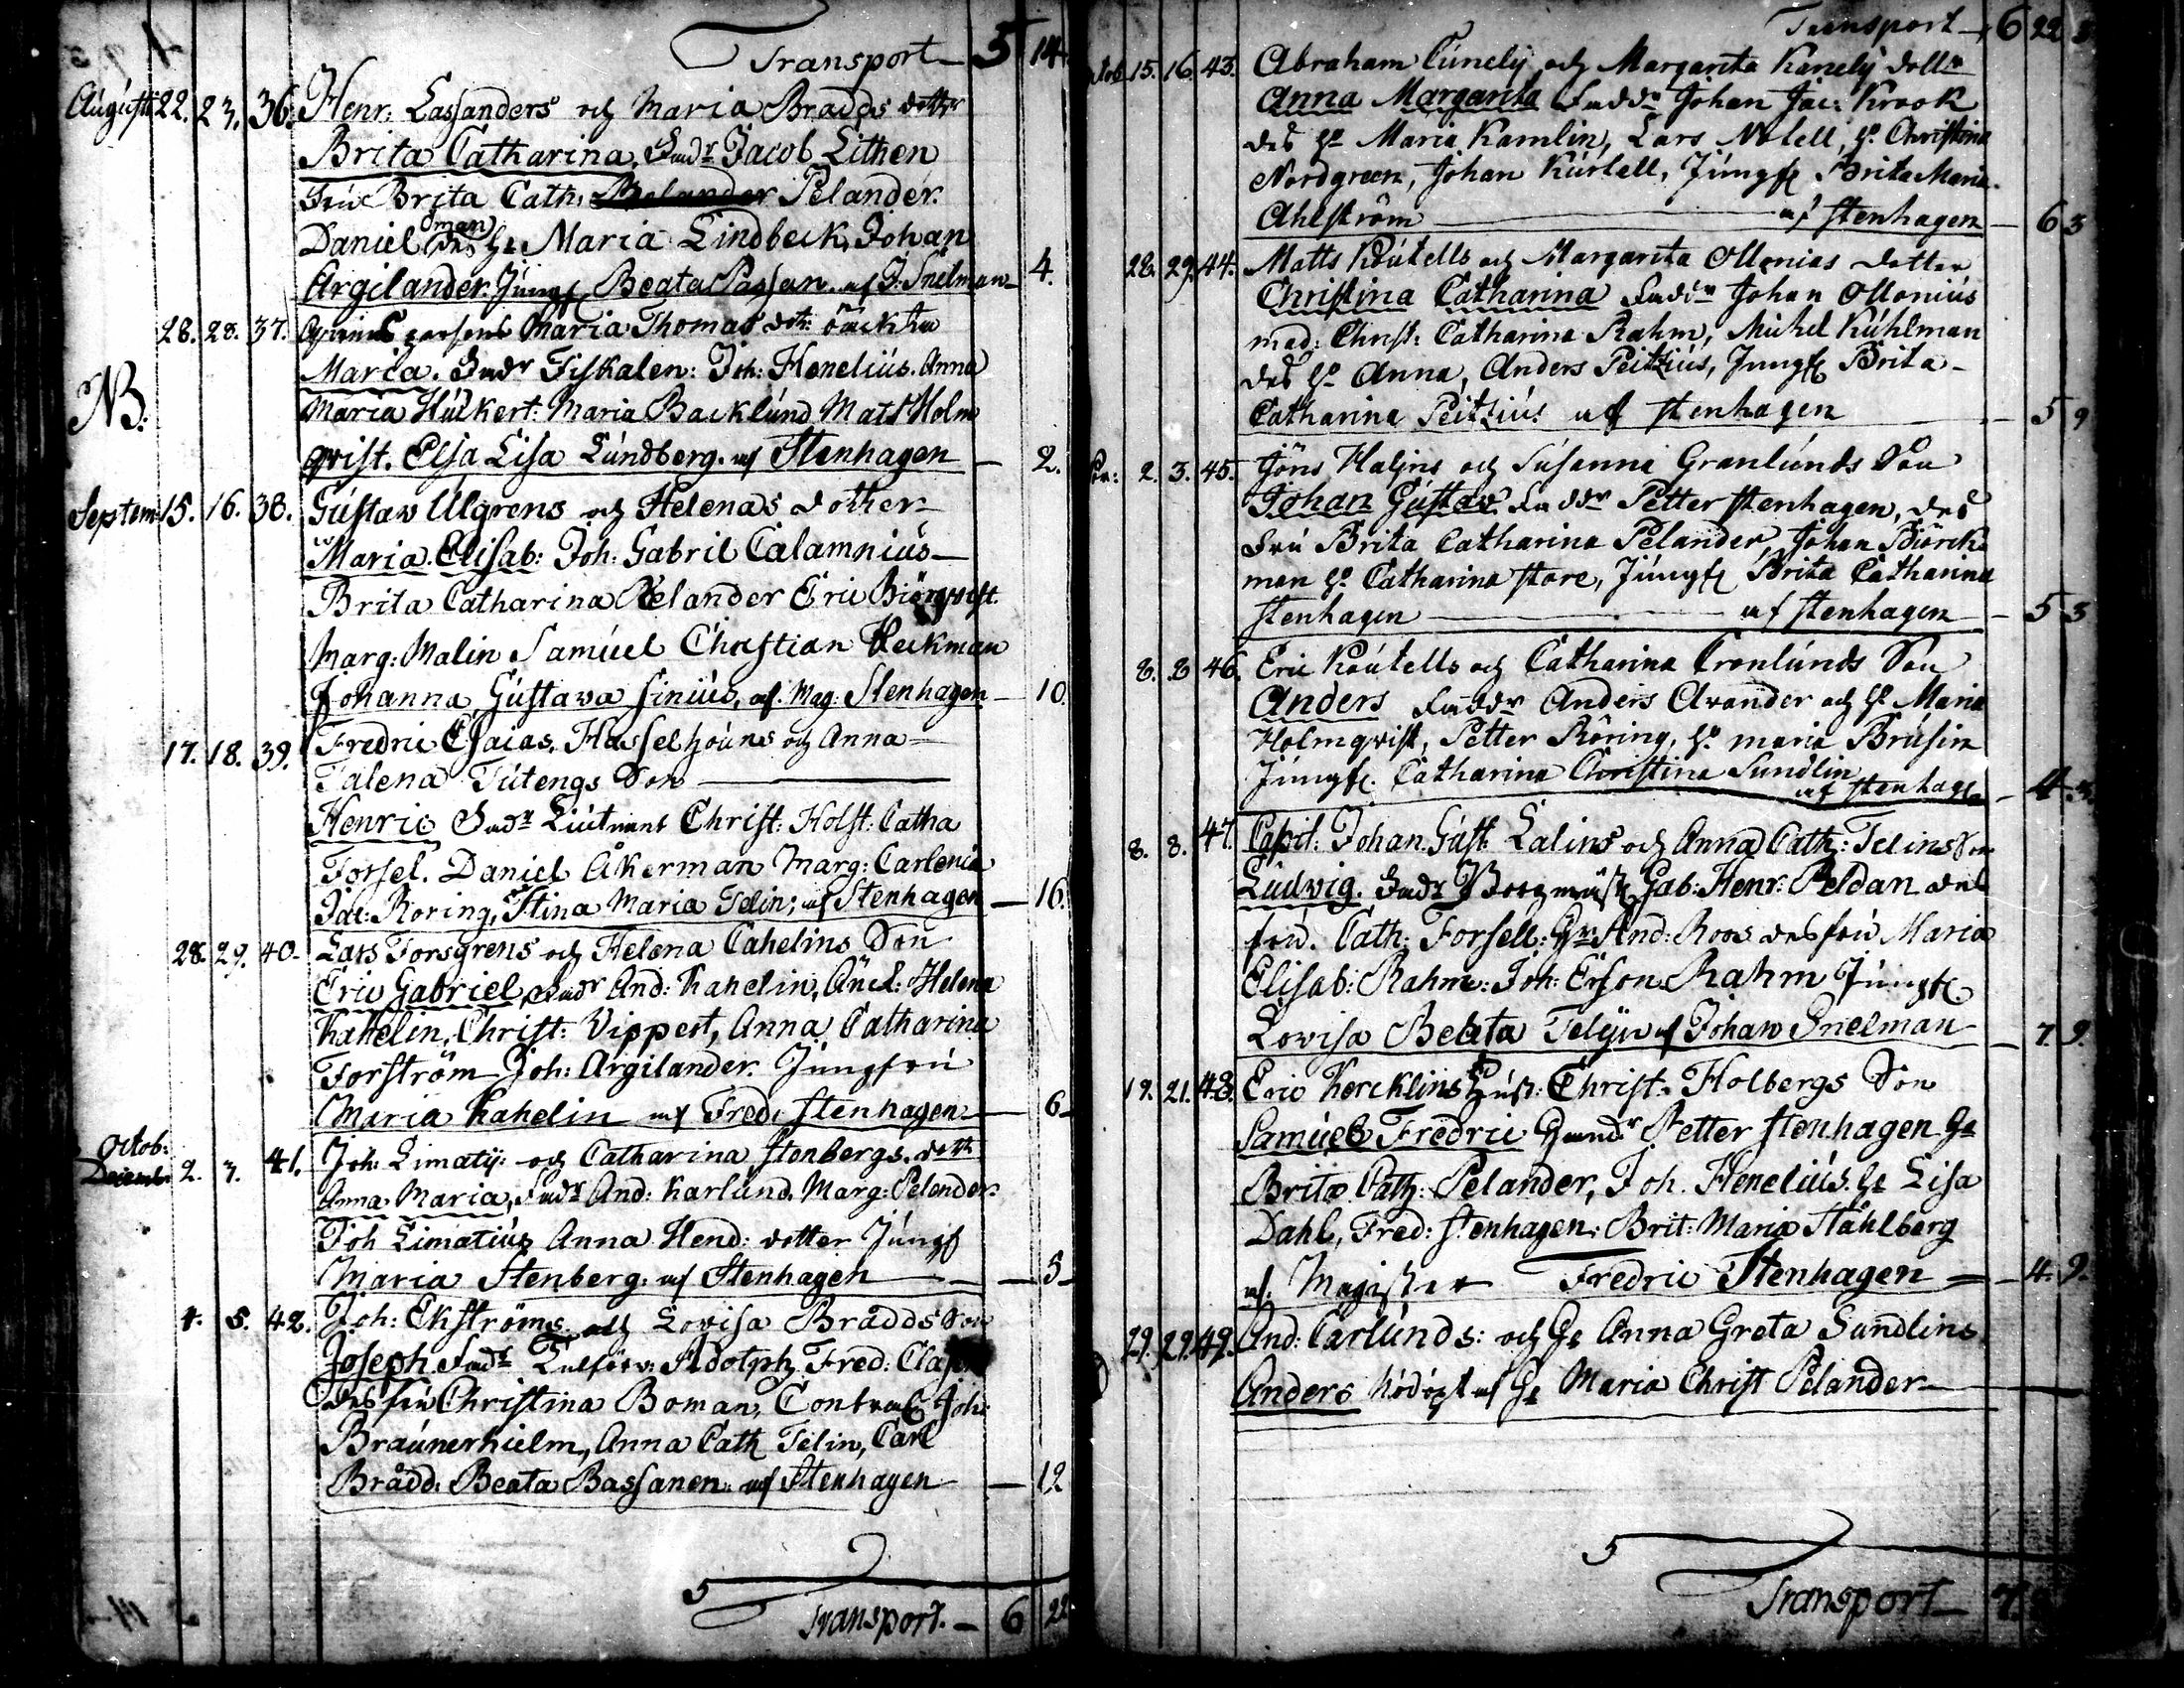 Transport 5 14
Augusti 22. 23. 36. Henr: Lassanders och Maria Brådds dotter
Brita Catharina, Fadr Jacob Lithen
Fru Brita Cath: Pelander
Daniel oman Hu Maria Lindbeck, Johan
Argilander. Jungf Beata af J: Snelman 4.
28. 28. 37. Maria Thomas dotr oäckta
NB. Maria. Fadr Fiskalen: Joh: Henelius. Anna
Maria Huckert: Maria Backlund Mats Holm
qvist. Elsa Lisa Lundberg. af Stenhagen 2.
Septem: 15. 16. 38. Gustav Ulgrens och Helenas dotter
Maria Elisab: Joh: Gabril Calamnius
Brita Catharina Pelander Eric Biörqvist.
Marg: Malin Samuel Christian Heckman
Johanna Gustava Sinius, af. Mag: Stenhagen 10
17. 18. 39. Fredric Esaias Hasselhouns och Anna
Talena Tutengs Son
Henric Fadr Liutnant Christ: Holst: Catha
Forsel. Daniel Åkerman Marg: Carlenia
Jac: Roring, Stina Maria Telin; af Stenhagen 16.
28. 29. 40. Lars Forsgrens och Helena Cahelins Son
Eric Gabriel, Fadr And: Kahelin, Änck: Helena
Kahelin, Christ: Vippert, Anna Catharina
Forström Joh: Argilander. Jungfru
Maria Kahelin af Fred: Stenhagen 6
Octob:
2. 3. 41. Joh: Limatij: och Catharina Stenbergs. dott
Anna Maria, Fadr And: Karlund. Marg: Pelander.
Joh Limatius Anna Hend: dotter Jungf
Maria Stenberg. af Stenhagen 5
4. 5. 42. Joh: Ekströms och Lovisa Brådds Son
Joseph. Fadr Adolph Fred:
des fru Christina Boman, Joh:
Braunerhielm, Anna Cath Telin, Carl
Brådd: Beata Bassanen: af Stenhagen 12
Transport. 6 22
Transport 6 22
15. 16 43. Abraham Cunelij och Margarita Kanelij dottr
Anna Margarita Faddr Johan Jac: Krook
des Hu Maria Kamlin, Lars Notell, Hu Christina
Nordgreen, Johan Kurtell, Jungf Brita Maria
Ahlström af Stenhagen 6 3
28. 29. 44. Matts Koutells och Margarita Ollonias dotter
Christina Catharina Faddr Johan Ollonius
mad: Christ: Catharina Rahm, Michel Kuhlman
des Hu Anna, Anders Peitzius, Jungf Brita
Catharina Peitzius af Stenhagen 5 9
2. 3. 45. Jöns Haljns och Susanna Granlunds Son
Johan Gustav Faddr Petter Stenhagen, des
Fru Brita Catharina Pelander, Johan Biörck
man Hu Catharina Store, Jungf Brita Catharina
Stenhagen af Stenhagen 5 3
8. 8 46. Eric Koutells och Catharina Cronlunds Son
Anders Faddr Anders Avander och Hu Maria
Holmqvist, Petter Röring, Hu maria Brusin
Jungf. Catharina Christina Sundlin
af Stenhagen 4.
8. 8. 47. Capit: Johan Gust: Lalins och Anna Cath: Telins Son
Ludvig. Fadr Borgmäst Gab: Henr: Peldan des
fru. Cath: Forsell: Hr And: Roos des fru Maria
Elisab: Rahm: Joh: Erson Rahm Jungf
Lovisa Beata Telijn af Johan Snelman 7 9.
19. 21. 48. Eric Kercklins Hust: Christ: Holbergs Son
Samuel Fredric Fadr Petter Stenhagen Hu
Brita Cath: Pelander, Joh. Henelius. Hu Lisa
Dahl, Fred: Stenhagen: Brit: Maria Ståhlberg
af. Magister Fredric Stenhagen 4. 9.
29. 29. 49. And: Carlunds: och Hu Anna Greta Sundlins
Anders Nödöpt af Hu Maria Christ Pelander
Transport 7